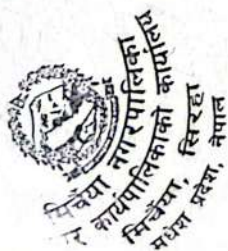 मिर्चैया नगरपालिका
र कार्यपालिकाको कार्यालय
मिर्चैया, सिरहा
मधेश प्रदेश, नेपाल